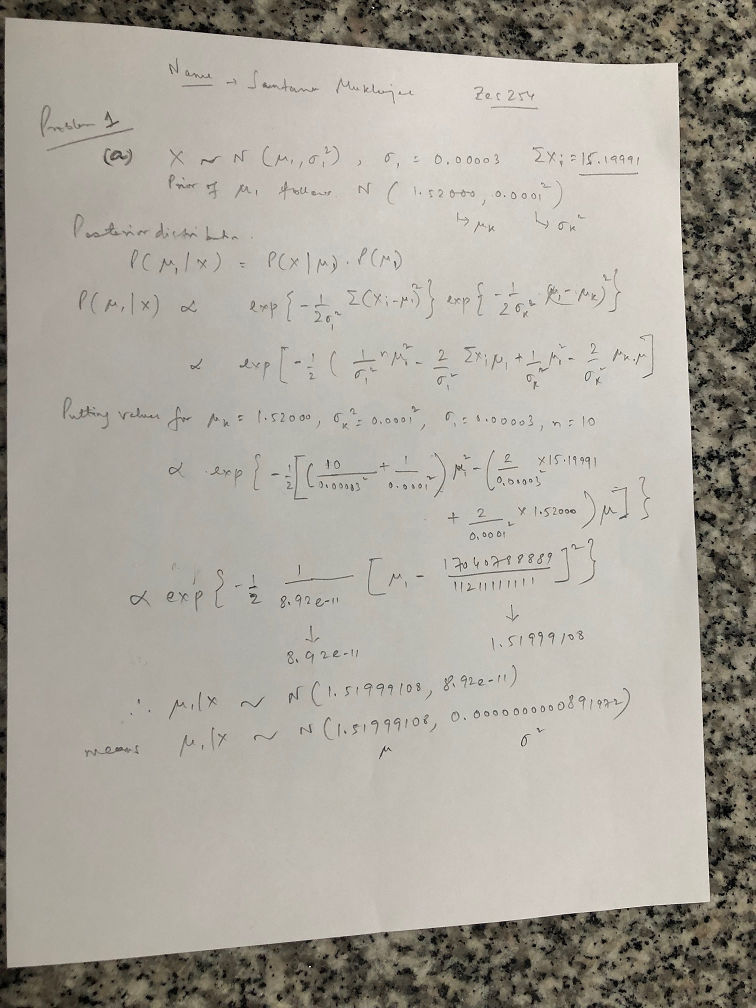 Name → Santanu Mukherjee Zec254
Problem 1
(a) X ~ N (μ₁, σ₁²) , σ₁ = 0.00003 Σxᵢ = 15.19991
Prior of μ₁ follows N ( 1.52000, 0.0001²)
↳ μₖ ↳ σₖ²
Posterior distribution.
P(μ₁|x) = P(x|μ₁) . P(μ₁)
P(μ₁|x) ∝ exp{ -1/2σ₁² Σ(xᵢ-μ₁)² } exp{ -1/2σₖ² (μ₁-μₖ)² }
∝ exp[ -1/2 ( 1/σ₁² nμ₁² - 2/σ₁² Σxᵢμ₁ + 1/σₖ² μ₁² - 2/σₖ² μₖ.μ ]
Putting values for μₖ = 1.52000, σₖ² = 0.0001², σ₁ = 0.00003, n = 10
∝ exp{ -1/2 [ ( 10/0.00003² + 1/0.0001² ) μ₁² - ( 2/0.00003² × 15.19991
+ 2/0.0001² × 1.52000 ) μ ] }
∝ exp{ -1/2 1/8.92e-11 [ μ₁ - 17040788889/11211111111 ]² }
↓ ↓
8.92e-11 1.51999108
∴ μ₁|x ~ N(1.51999108, 8.92e-11)
means μ₁|x ~ N(1.51999108, 0.0000000000891972)
μ σ²